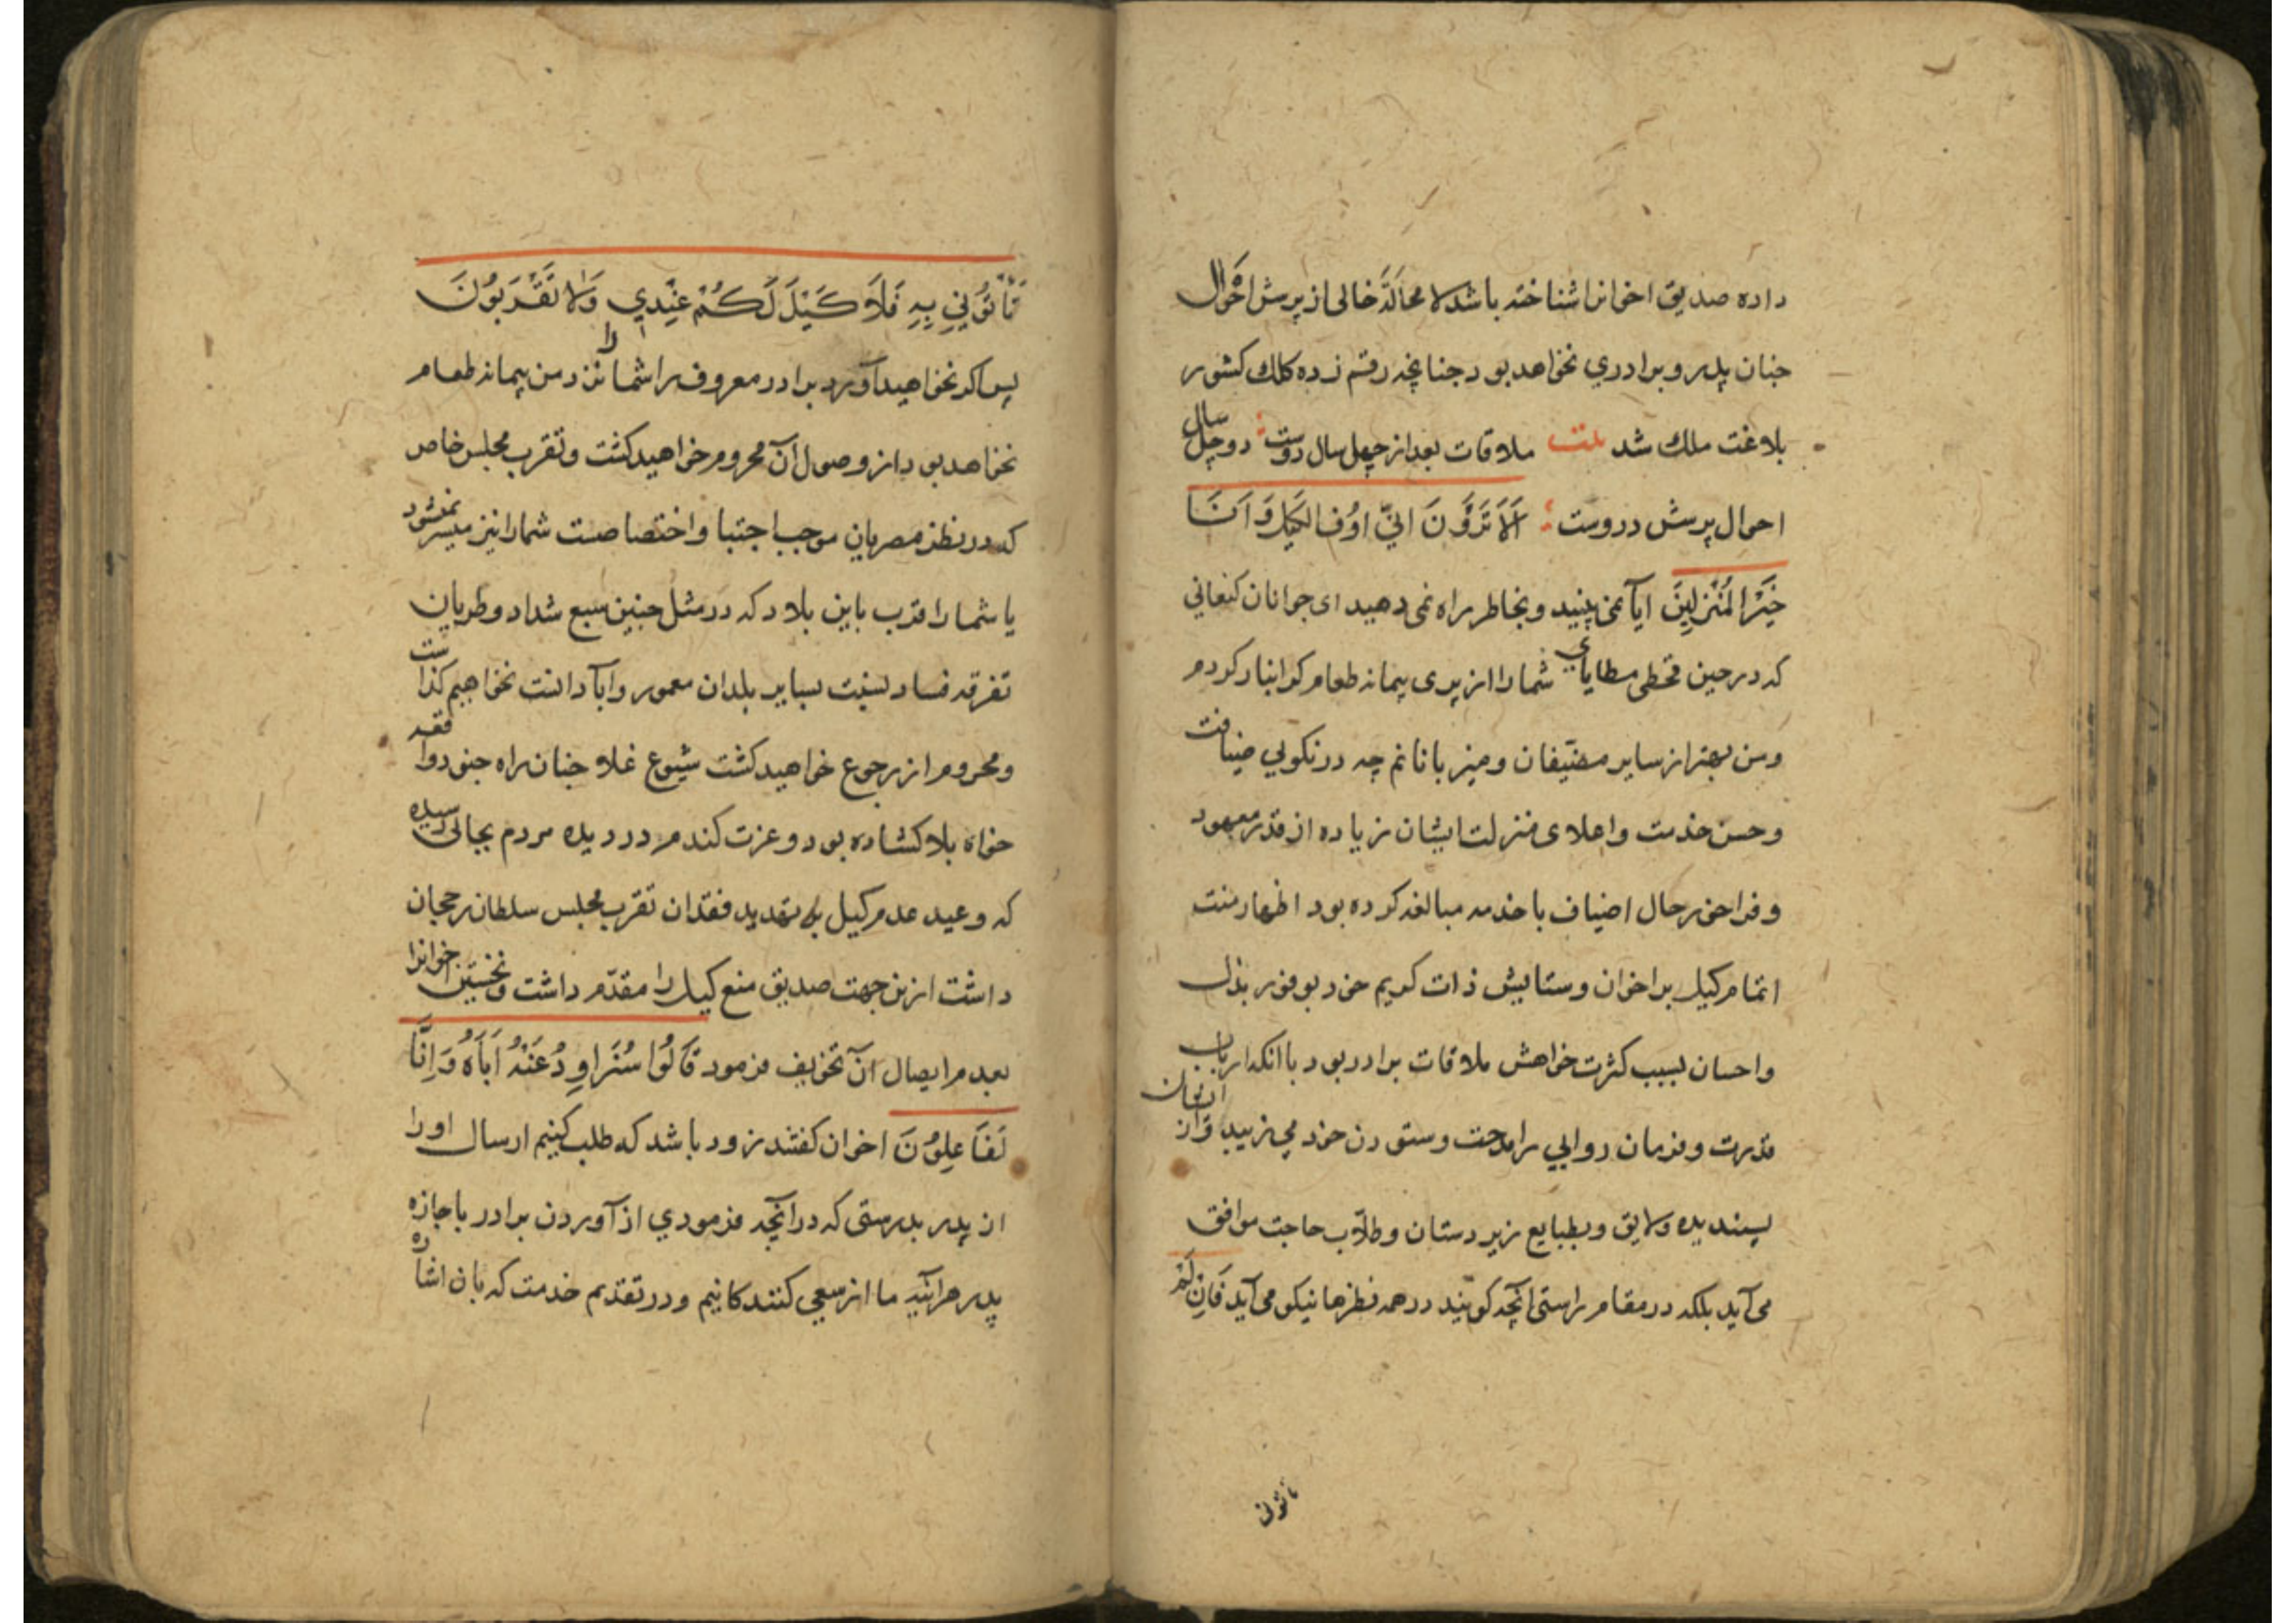 داده صدیق اخوانرا شناخته باشد لا محالَه خالی از پرسش احوال
چنان پدر و برادری نخواهد بود چنانچه رقم زده کلك کشور
بلاغت ملك شد بیت ملاقات بعد از چهل سال دوست دو چل سال
احوال پرسش دروست اَلاَ تَرَوْنَ اَنِّي اُوفِ الكَيْلَ وَ اَنَا
خَيْرُ الْمُنْزِلِينَ ایا نمی بینید و بخاطر راه نمی دهید ای جوانان کنعانی
که در حین قحطی مطایای شما را از پری پیمانه طعام کرانبار کردم
و من بهتر از سایر مضیفان و میزبانانم چه در نکویی ضیافت
و حسن خدمت و اعلای منزلت ایشان زیاده از قدر معهود
و فراخور حال اضیاف با خدمه مبالغه کرده بود اظهار منت
اتمام کیل بر اخوان و ستایش ذات کریم خود بوفور بذل
و احسان بسبب کثرت خواهش ملاقات برادر بود با انکه ارباب
قدرت و فرمان روایی را مدحت و ستودن خود می زیبد و از ایشان
پسندیده و لایق و بطبایع زیردستان و طلاب حاجت موافق
می آید بلکه در مقام راستی انچه کویند در همه نظرها نیکو می آید فَاِنْ لَمْ
تاتونی
تَأْتُونِي بِهِ فَلَا كَيْلَ لَكُمْ عِنْدِي وَلَا تَقْرَبُونَ
پس اکر نخواهید آورد برادر معروف را شما را نزد من پیمانه طعام
نخواهد بود و از وصول آن محروم خواهید کشت و تقرب مجلس خاص
که در نظر مصریان موجب اجتبا و اختصاصت شما را نیز میسر نمیشود
یا شما را قرب باین بلاد که در مثل چنین سبع شداد و طریان
تفرقه فساد بسبت بسایر بلدان معمور و آبادانست نخواهیم کذاشت
و محروم از رجوع خواهید کشت شیوع غلا چنان راه جنود واقعه
خواه بلا کشاده بود و عزت کندم در دیده مردم بجالی رسیده
که وعید عدم کیل بر تهدید فقدان تقرب مجلس سلطان رجحان
داشت ازین جهت صدیق منع کیل را مقدّم داشت و نخستین اخوانرا
بعدم ایصال آن تخویف فرمود قَالُوا سَنُرَاوِدُ عَنْهُ اَبَاهُ وَ اِنَّا
لَفَاعِلُونَ اخوان کفتند زود باشد که طلب کنیم ارسال او را
از پدر بدرستی که در آنچه فرمودی از آوردن برادر با جازه
پدر هر آینه ما از سعی کنندکانیم و در تقدیم خدمت که بان اشاره